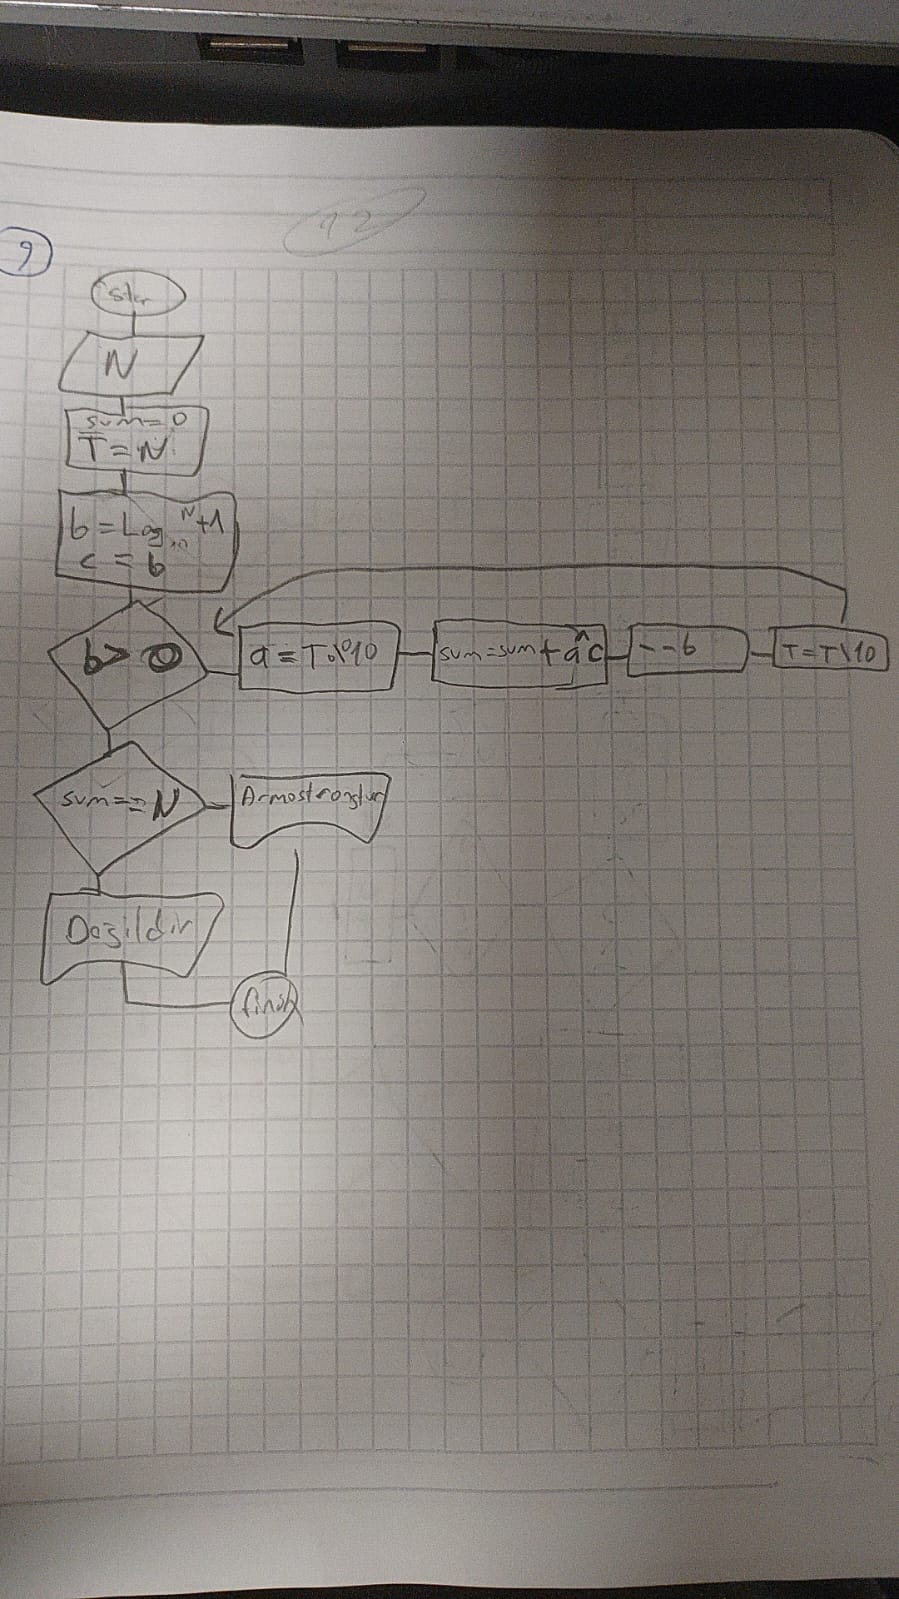 12
9
N
sum=0
T=N
b=Log₁₀ᴺ+1
c=b
b>0
a=T%10
sum=sum+a^c
--b
T=T\10
sum==N
Armostrongtur
Degildir
finish